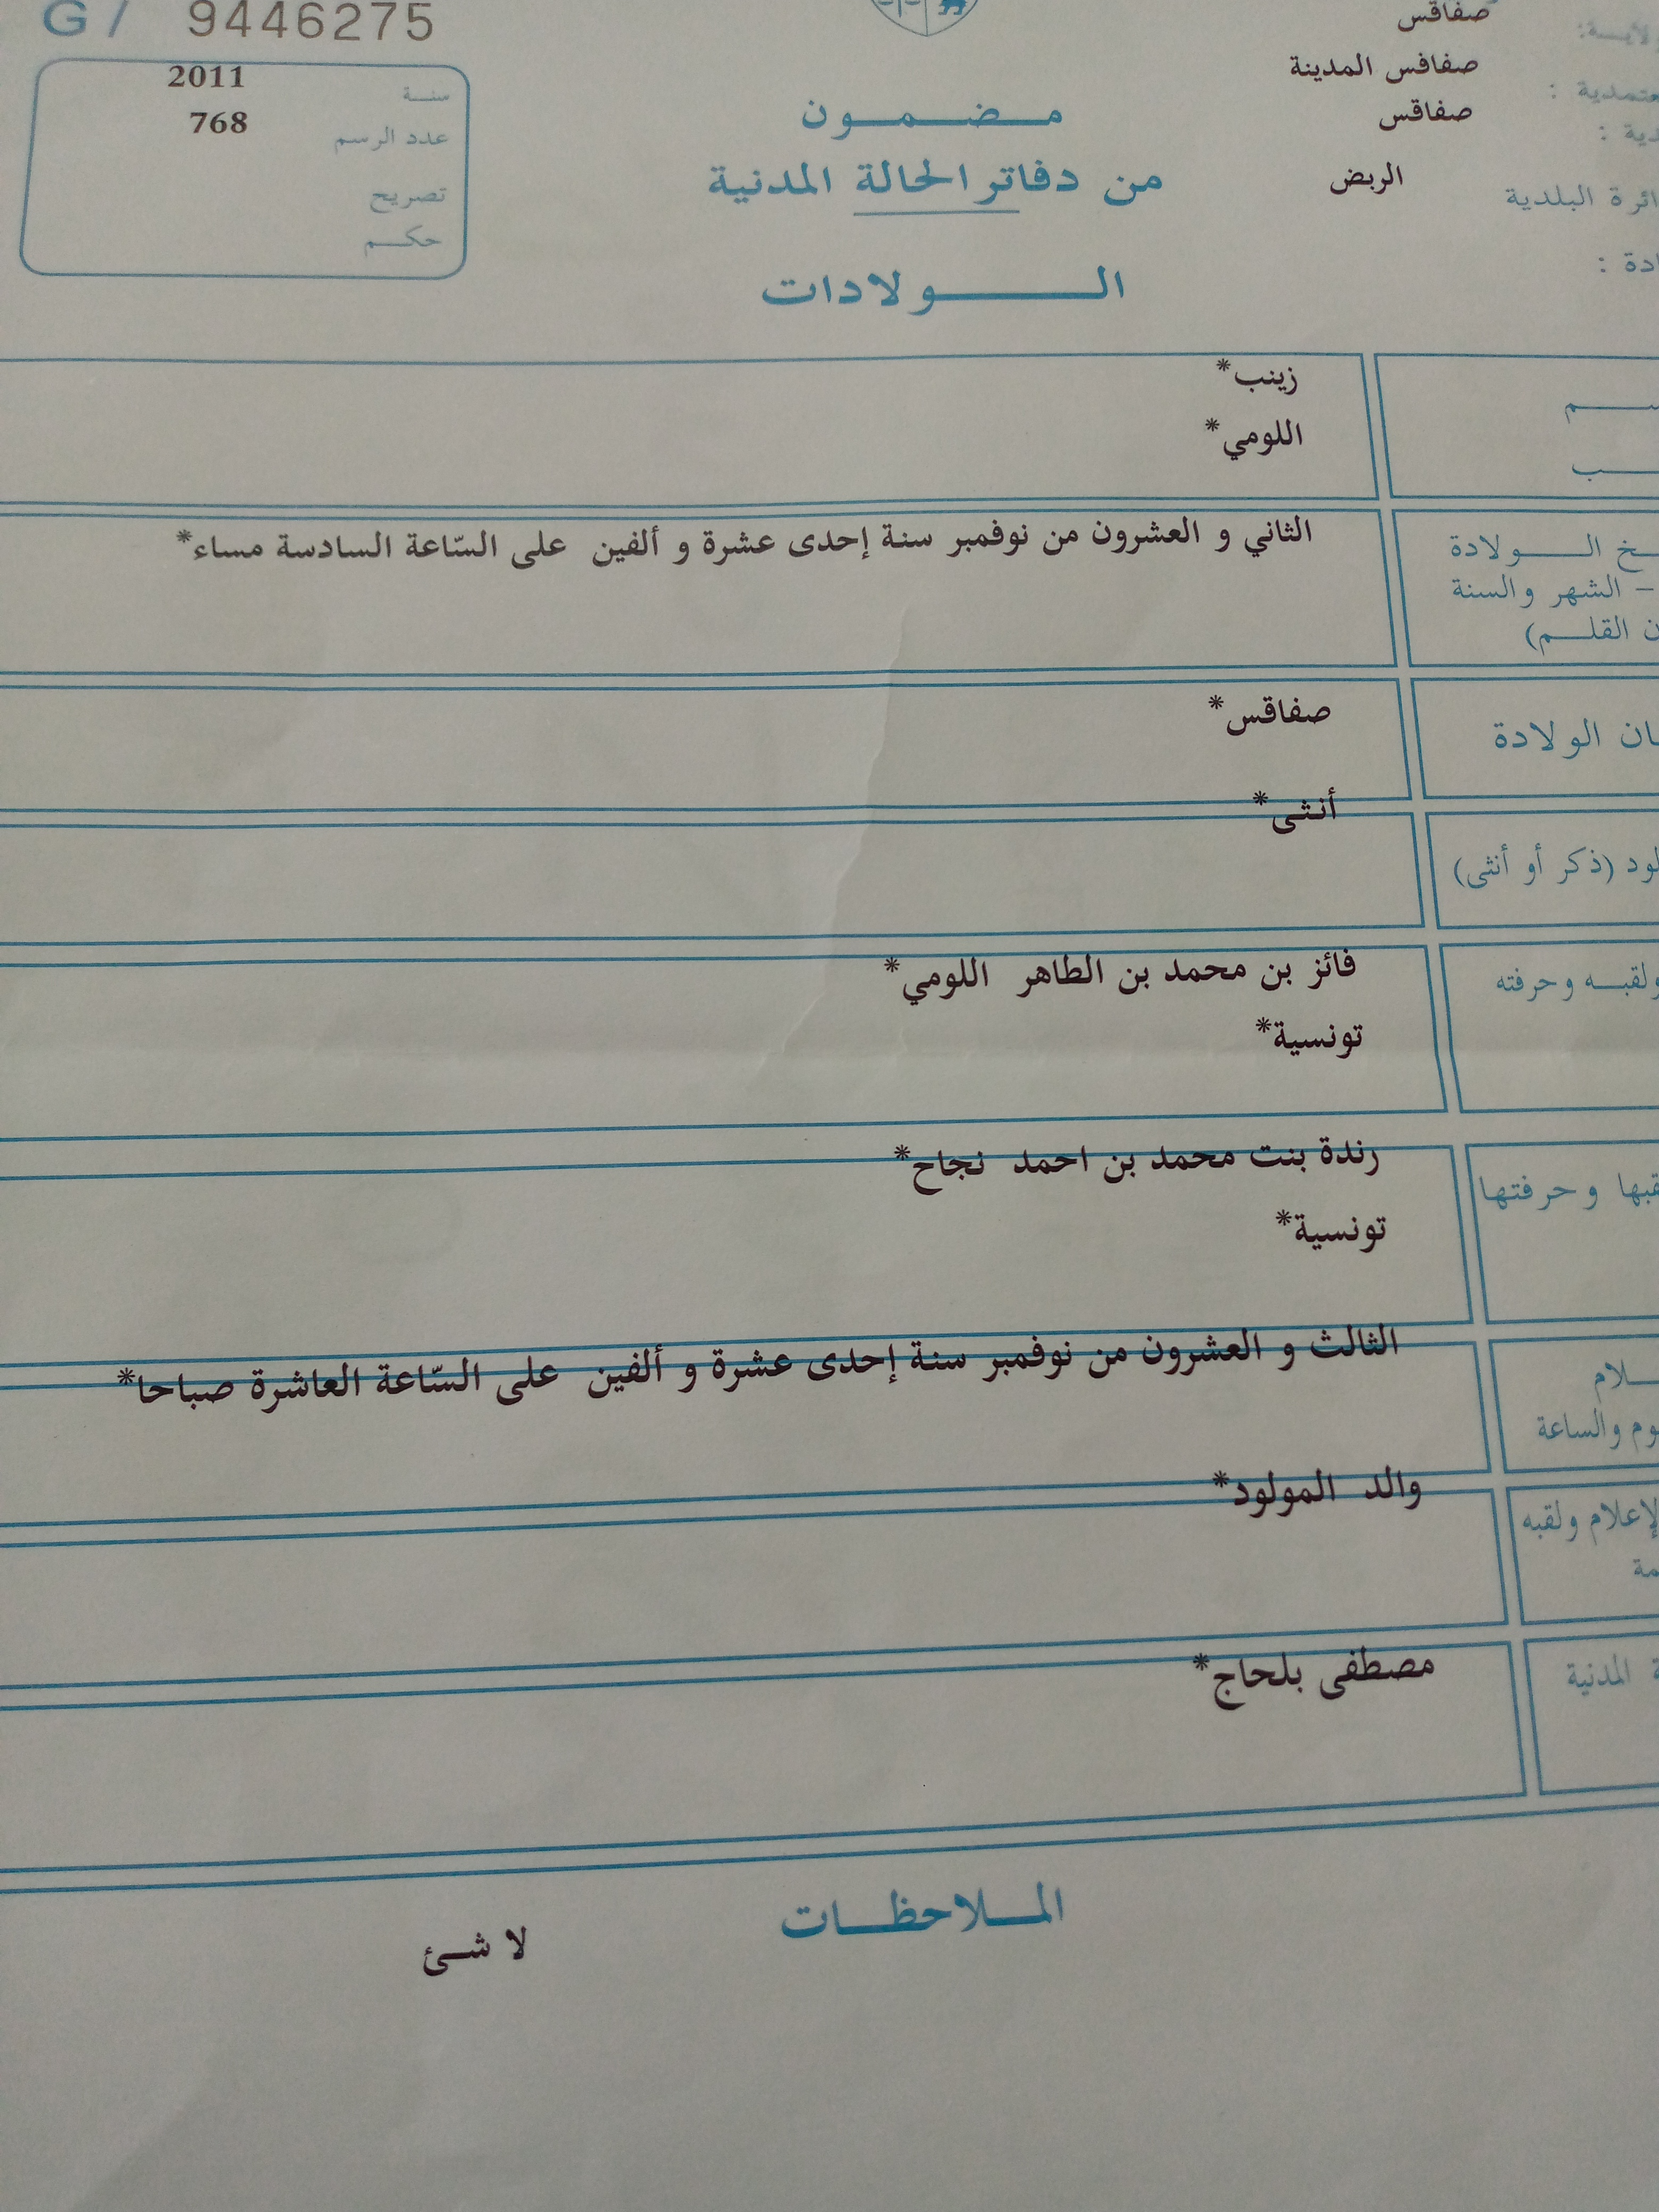 G / 9446275
سنة 2011
عدد الرسم 768
تصريح
حكم
مضمون
من دفاتر الحالة المدنية
الولادات
صفاقس
صفاقس المدينة
صفاقس
البلدية الربض
زينب*
اللومي*
الولادة
– الشهر والسنة
القلم)
الثاني و العشرون من نوفمبر سنة إحدى عشرة و ألفين على السّاعة السادسة مساء*
الولادة
صفاقس*
(ذكر أو أنثى)
أنثى*
وحرفته
فائز بن محمد بن الطاهر اللومي*
تونسية*
وحرفتها
رندة بنت محمد بن احمد نجاح*
تونسية*
والساعة
الثالث و العشرون من نوفمبر سنة إحدى عشرة و ألفين على السّاعة العاشرة صباحا*
ولقبه
والد المولود*
المدنية
مصطفى بلحاج*
الملاحظات
لا شئ